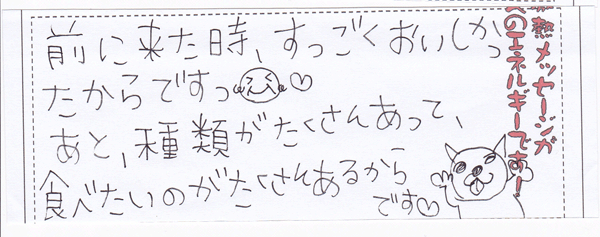 前に来た時、すっごくおいしかっ
たからですっ♡
あと、種類がたくさんあって、
食べたいのがたくさんあるから
です♡
熱メッセージが
のエネルギーです!